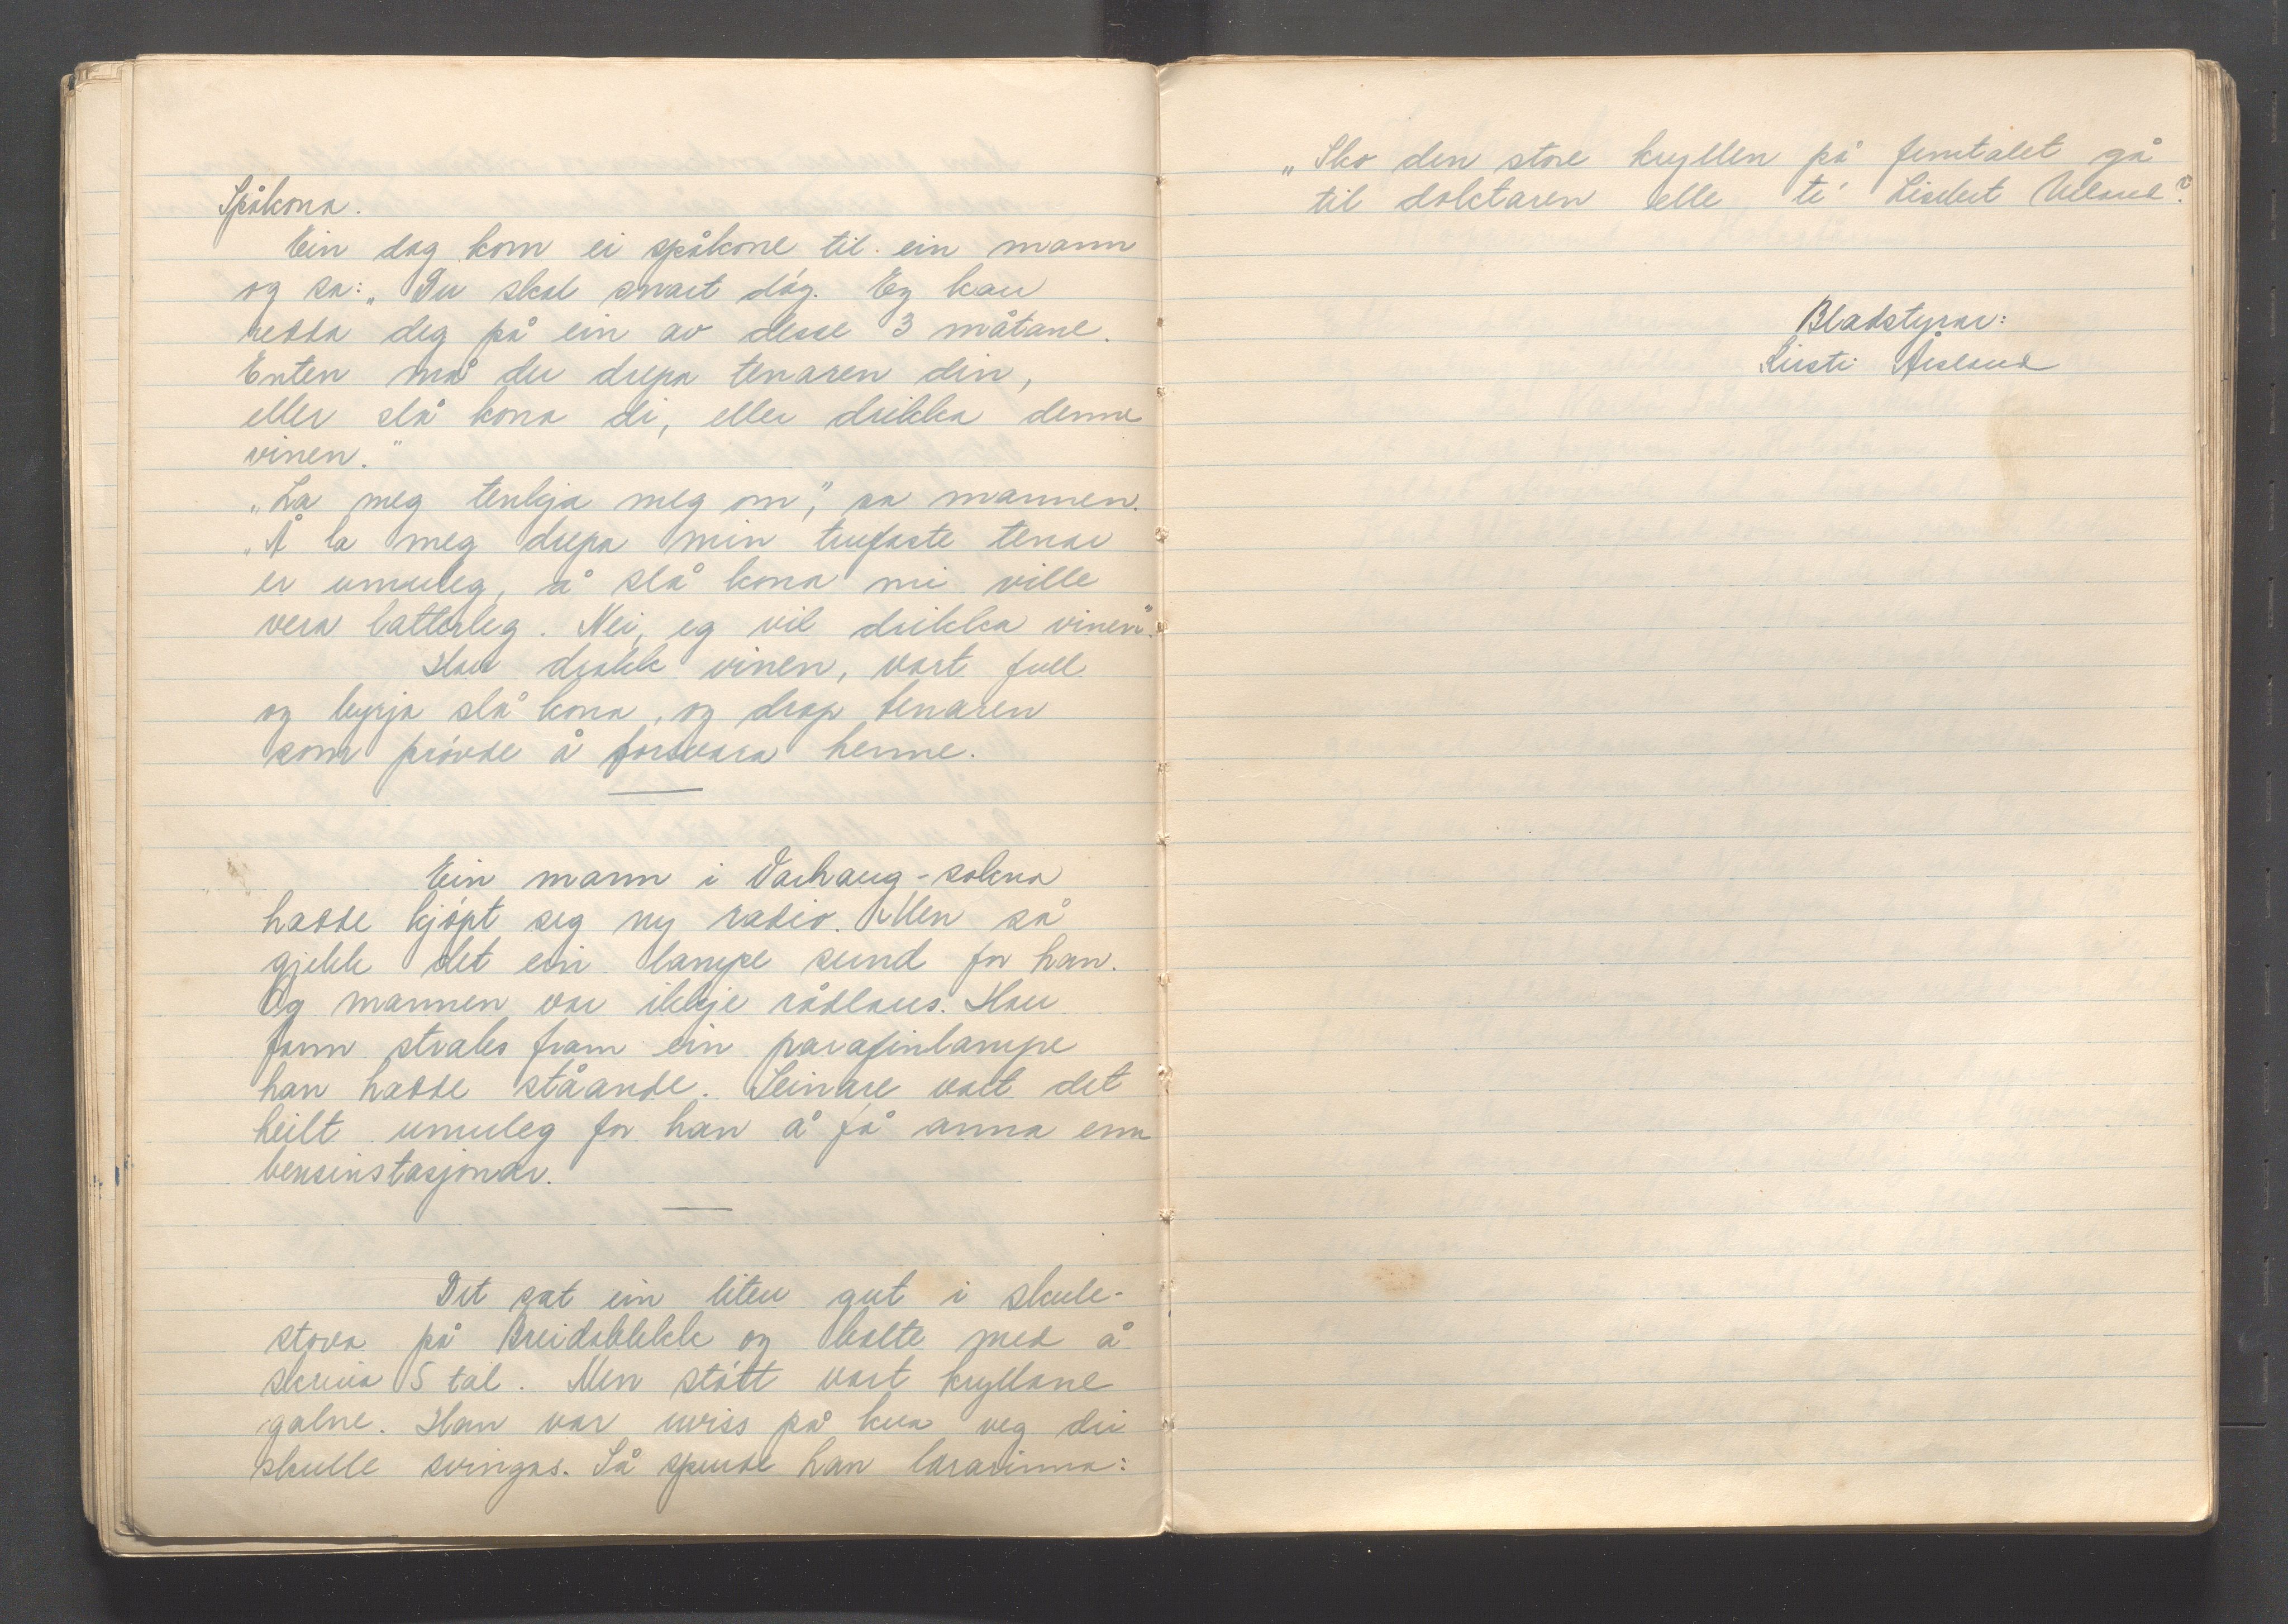 Spåkona.
Ein dag kom ei spåkone til ein mann
og sa: „Du skal snart døy. Eg kan
redda deg på ein av desse 3 måtane.
Enten må du drepa tenaren din,
eller slå kona di, eller drikka denne
vinen."
„La meg tenkja meg om," sa mannen.
„Å la meg drepa min trufaste tenar
er umuleg, å slå kona mi ville
vera latterleg. Nei, eg vil drikka vinen".
Han drakk vinen, vart full
og byrja slå kona, og drap tenaren
som prøvde å forsvara henne.
Ein mann i Varhaug-sokna
hadde kjøpt seg ny radio. Men så
gjekk det ein lampe sund for han.
Og mannen var ikkje rådlaus. Han
fann straks fram ein parafinlampe
han hadde ståande. Seinare vart det
heilt umuleg for han å få anna enn
bensinstasjonar.
Det sat ein liten gut i skule-
stova på Breidablikk og balte med å
skriva 5 tal. Men støtt vart kryllane
galne. Han var uviss på kva veg dei
skulle svingas. Så spurde han lærarinna:
„Sko den store kryllen på femtalet gå
til doktaren elle te' Lisabet Ueland?
Bladstyrar:
Kirsti Årsland